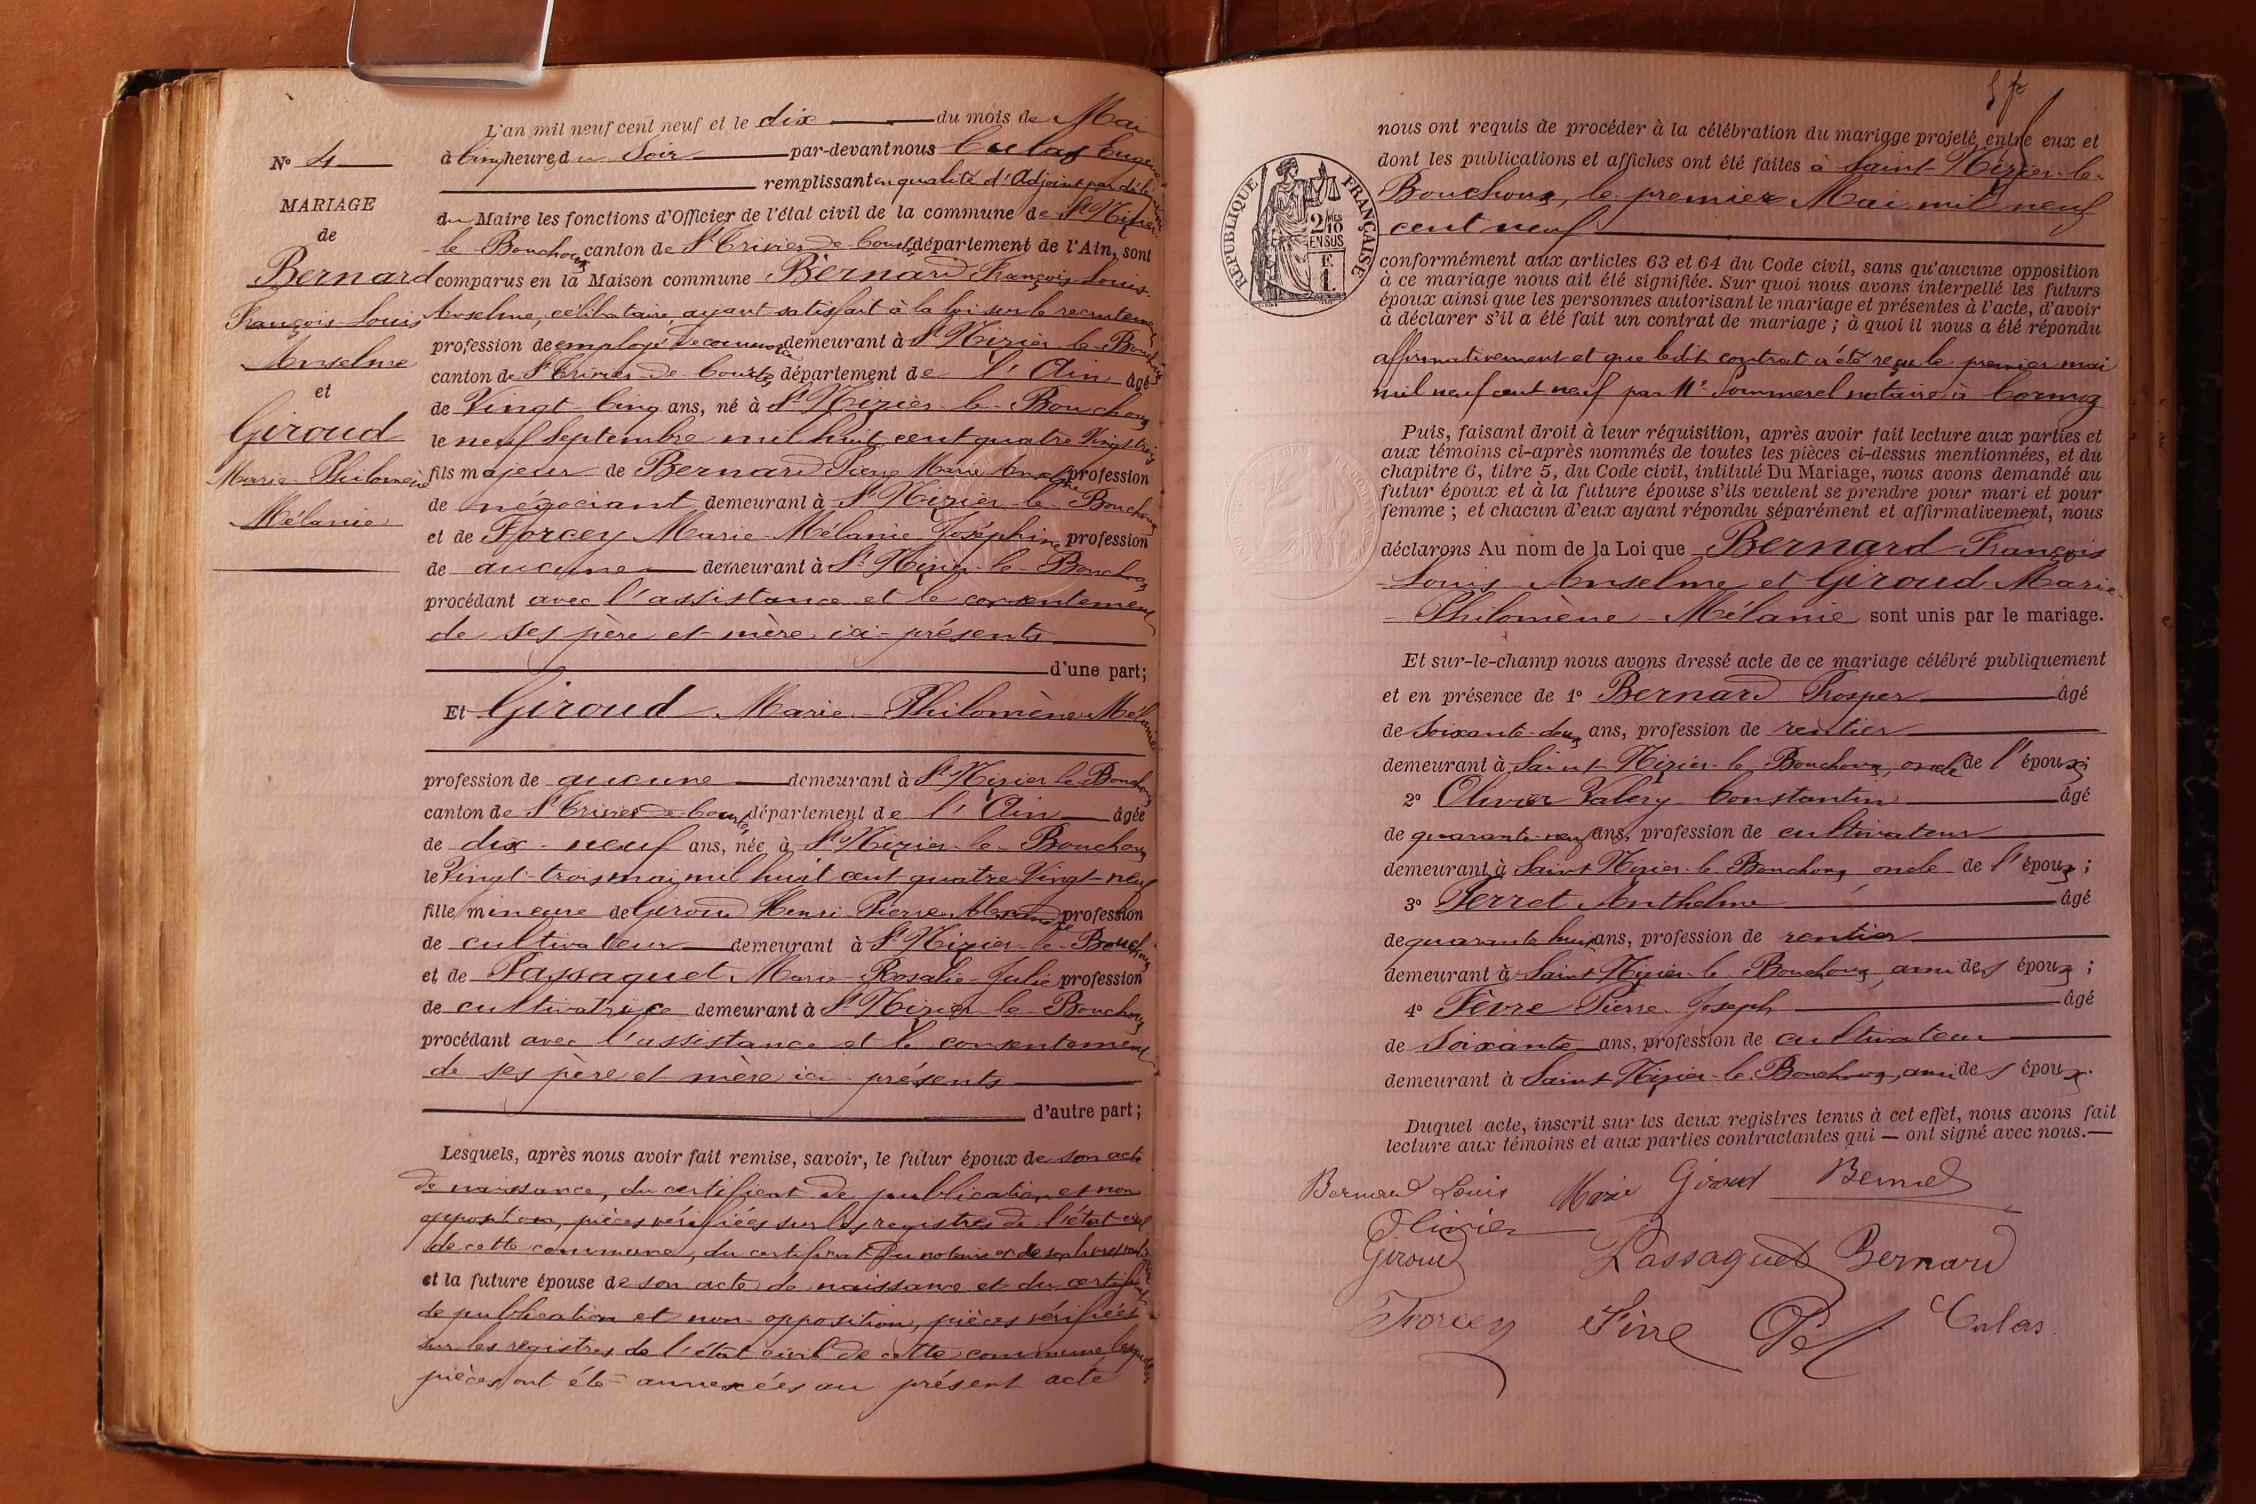 L'an mil neuf cent neuf et le dix du mois de Mai
N° 4
à Cinq heures du Soir par-devant nous Culas Eugène
remplissant en qualité d'Adjoint par délégation
MARIAGE
du Maire les fonctions d'Officier de l'état civil de la commune de St Nizier
de
le Bouchoux canton de St Trivier de Courtes département de l'Ain, sont
Bernard
comparus en la Maison commune Bernard François Louis
François Louis
Anselme, célibataire, ayant satisfait à la loi sur le recrutement
profession de employé de commerce demeurant à St Nizier le Bouchoux
Anselme
canton de St Trivier de Courtes département de l'Ain âgé
et
de Vingt Cinq ans, né à St Nizier le Bouchoux
Giroud
le neuf Septembre mil huit cent quatre Vingt trois
Marie Philomène
fils majeur de Bernard Pierre Marie Anselme profession
de négociant demeurant à St Nizier le Bouchoux
Mélanie
et de Forcey Marie Mélanie Joséphine profession
de aucune demeurant à St Nizier le Bouchoux
procédant avec l'assistance et le consentement
de ses père et mère ici présents
d'une part;
Et Giroud Marie Philomène Mélanie
profession de aucune demeurant à St Nizier le Bouchoux
canton de St Trivier de Courtes département de l'Ain âgée
de dix neuf ans, née à St Nizier le Bouchoux
le Vingt trois mai mil huit cent quatre Vingt neuf
fille mineure de Giroud Henri Pierre Alexandre profession
de cultivateur demeurant à St Nizier le Bouchoux
et de Passaquet Marie Rosalie Julie profession
de cultivatrice demeurant à St Nizier le Bouchoux
procédant avec l'assistance et le consentement
de ses père et mère ici présents
d'autre part;
Lesquels, après nous avoir fait remise, savoir, le futur époux de son acte
de naissance, du certificat de publication et non
opposition, pièces vérifiées sur les registres de l'état civil
de cette commune, du certificat du notaire et de
et la future épouse de son acte de naissance et du certificat
de publication et non opposition, pièces vérifiées
sur les registres de l'état civil de cette commune lesquelles
pièces ont été annexées au présent acte
nous ont requis de procéder à la célébration du mariage projeté entre eux et
dont les publications et affiches ont été faites à Saint Nizier le
Bouchoux, le premier Mai mil neuf
cent neuf
RÉPUBLIQUE FRANÇAISE
2/10
EN SUS
F.
1.
conformément aux articles 63 et 64 du Code civil, sans qu'aucune opposition
à ce mariage nous ait été signifiée. Sur quoi nous avons interpellé les futurs
époux ainsi que les personnes autorisant le mariage et présentes à l'acte, d'avoir
à déclarer s'il a été fait un contrat de mariage; à quoi il nous a été répondu
affirmativement et que ledit contrat a été reçu le premier mai
mil neuf cent neuf par Me Sommerel notaire à Cormoz
Puis, faisant droit à leur réquisition, après avoir fait lecture aux parties et
aux témoins ci-après nommés de toutes les pièces ci-dessus mentionnées, et du
chapitre 6, titre 5, du Code civil, intitulé Du Mariage, nous avons demandé au
futur époux et à la future épouse s'ils veulent se prendre pour mari et pour
femme; et chacun d'eux ayant répondu séparément et affirmativement, nous
déclarons Au nom de la Loi que Bernard François
Louis Anselme et Giroud Marie
Philomène Mélanie sont unis par le mariage.
Et sur-le-champ nous avons dressé acte de ce mariage célébré publiquement
et en présence de 1° Bernard Prosper âgé
de Soixante-deux ans, profession de rentier
demeurant à Saint Nizier le Bouchoux, oncle de l'époux;
2° Olivier Valéry Constantin âgé
de quarante neuf ans, profession de cultivateur
demeurant à Saint Nizier le Bouchoux oncle de l'époux;
3° Perret Anthelme âgé
de quarante huit ans, profession de rentier
demeurant à Saint Nizier le Bouchoux, ami des époux;
4° Fèvre Pierre Joseph âgé
de Soixante ans, profession de cultivateur
demeurant à Saint Nizier le Bouchoux, ami des époux.
Duquel acte, inscrit sur les deux registres tenus à cet effet, nous avons fait
lecture aux témoins et aux parties contractantes qui — ont signé avec nous.—
Bernard Louis Marie Giroud Bernard
Olivier
Giroud Passaquet Bernard
Forcey Fèvre Culas